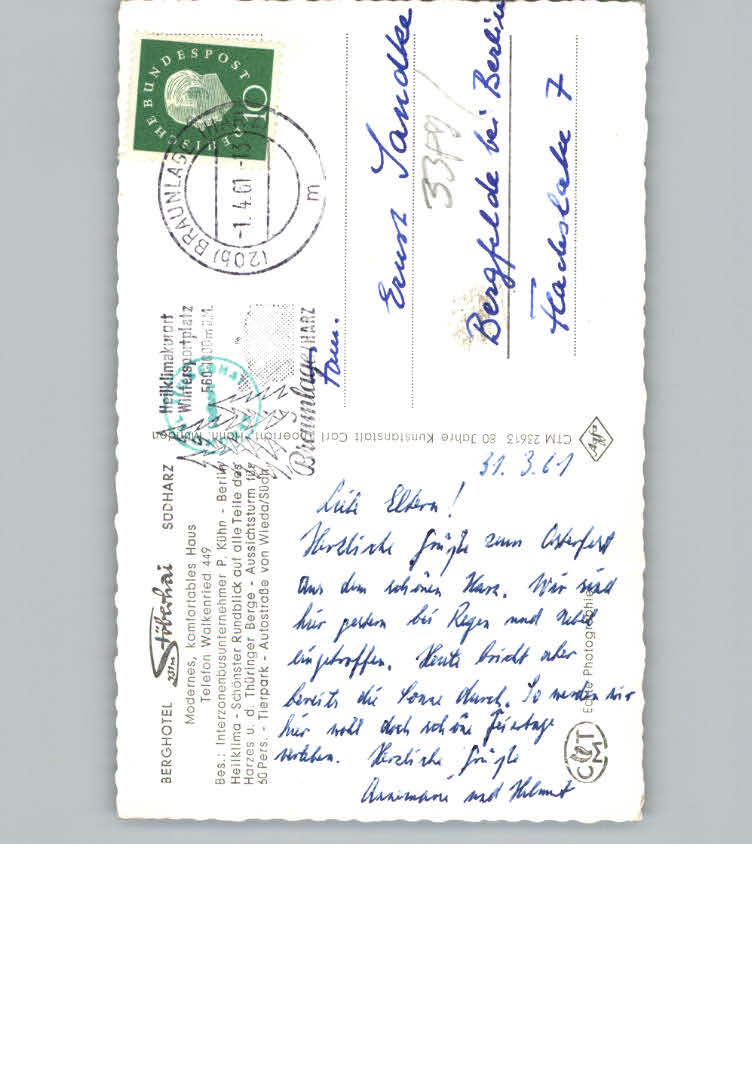 BERGHOTEL Stöberhai SÜDHARZ
Modernes, komfortables Haus
Telefon Walkenried 449
Bes.: Interzonenbusunternehmer P. Kühn - Berlin
Heilklima - Schönster Rundblick auf alle Teile des
Harzes u. d. Thüringer Berge - Aussichtsturm für
50 Pers. - Tierpark - Autostraße von Wieda/Südh.
31. 3. 61
Liebe Eltern!
Herzliche Grüße zum Osterfest
aus dem schönen Harz. Wir sind
hier gestern bei Regen und Nebel
eingetroffen. Heute bricht aber
bereits die Sonne durch. So werden wir
hier wohl doch schöne Feiertage
verleben. Herzliche Grüße
Annemarie und Helmut
Echte Photographie
C M T
CTM 23613 80 Jahre Kunstanstalt Carl
Hann. Münden
Agfa
DEUTSCHE BUNDESPOST
10
(20b) BRAUNLAGE
-1.4.61-13
m
Heilklimakurort
Wintersportplatz
560-1000mü.M.
Braunlage/HARZ
Fam.
Ernst Sandke
Bergfelde bei Berlin
Flachslake 7